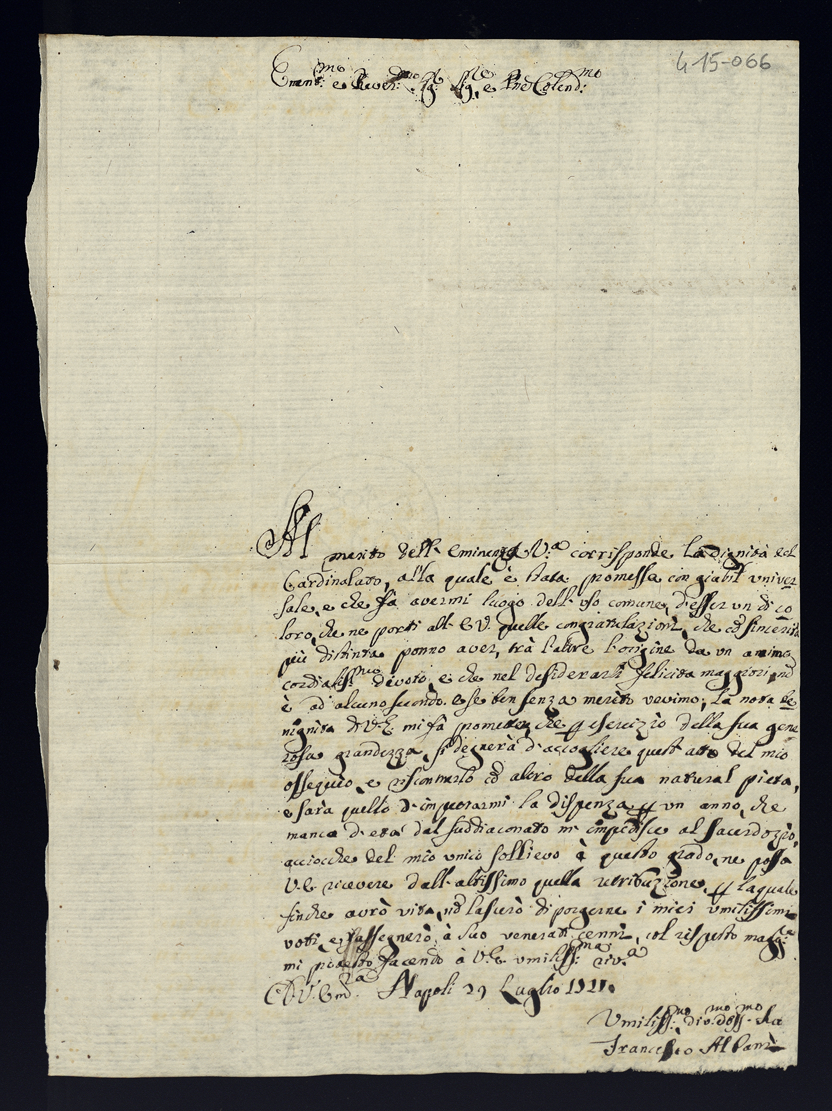 415-066
Emin:mo e Rever:mo Sig:r Sig:re e Pne Colend:mo
Al merito dell'Eminenza V:a corrisponde la Dignità del
Cardinalato, alla quale è stata promossa con giubil'univer
sale, e che fà avermi luogo dell'uso comune, d'esser un di co
loro, che ne porti all'E V. quelle congratulazioni, che cõ sincerità
più distinta ponno aver, trà l'altre l'origine da un animo
cordialiss:mo devoto, e che nel desiderarli felicità maggiori nõ
è ad alcuno secondo. e se ben senza merito verimo, la nota be
nignità di V.E. mi fà promettere, che esercizio della sua gene
rosa grandezza, si degnerà d'accogliere quest'atto del mio
ossequio, e riscontrarlo cõ altro della sua natural pietà,
e sarà quello d'impetrarmi la dispenza un anno, che
manca d'età dal suddiaconato m'impedisce al sacerdozio,
acciocche del mio unico sollievo à questo grado, ne possa
V.E. ricevere dall'altissimo quella retribuzione, laquale
finche avrò vita, nõ lascierò di porgerne i miei umilissimi
voti, e rassegnerò, à suo venerati cenni, col rispetto magg:r
mi protesto facendo à V.E. umiliss:ma riv:a
D.V. Em:a Napoli 29 Luglio 1721.
Umiliss:mo div:mo oss:mo
Francesco Albani